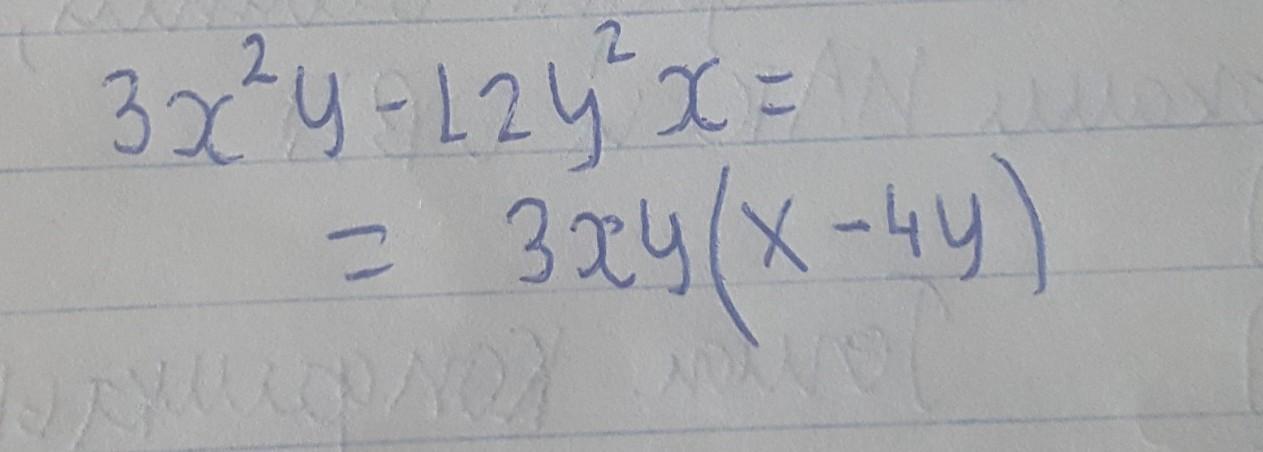 3x²y-12y²x=
= 3xy(x-4y)